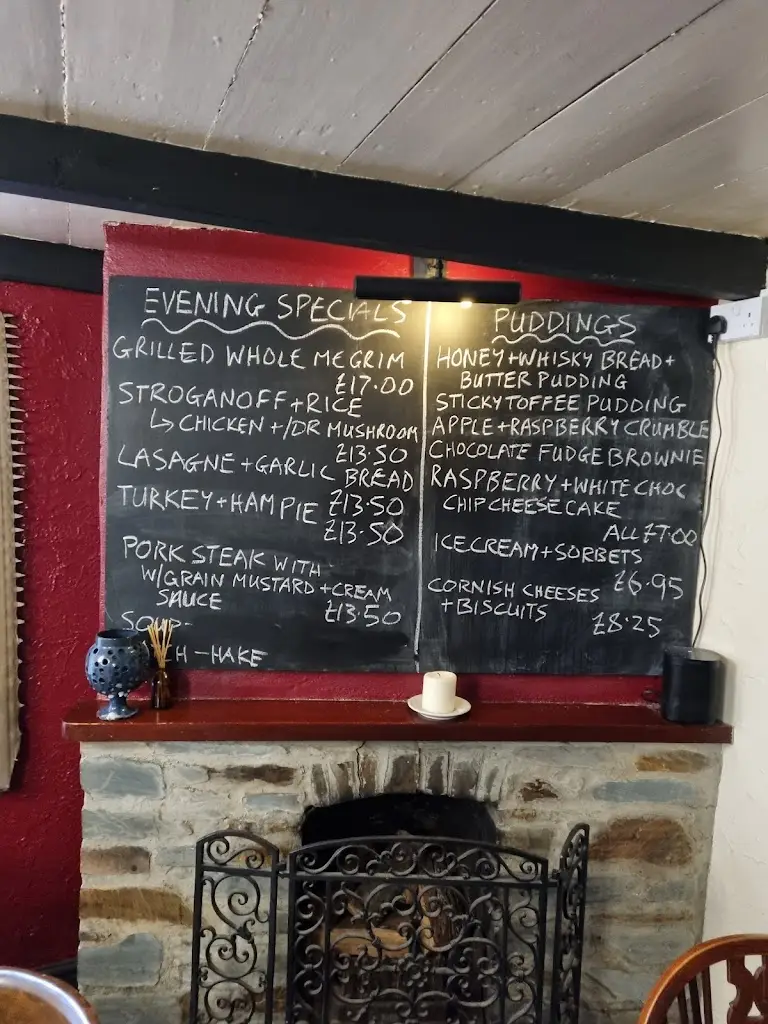 EVENING SPECIALS
GRILLED WHOLE MEGRIM
£17.00
STROGANOFF + RICE
↳ CHICKEN +/OR MUSHROOM
£13.50
LASAGNE + GARLIC BREAD
£13.50
TURKEY + HAM PIE
£13.50
PORK STEAK WITH
W/GRAIN MUSTARD + CREAM
SAUCE £13.50
SOUP-
- HAKE
PUDDINGS
HONEY + WHISKY BREAD +
BUTTER PUDDING
STICKY TOFFEE PUDDING
APPLE + RASPBERRY CRUMBLE
CHOCOLATE FUDGE BROWNIE
RASPBERRY + WHITE CHOC
CHIP CHEESECAKE
ALL £7.00
ICECREAM + SORBETS
£6.95
CORNISH CHEESES
+ BISCUITS
£8.25